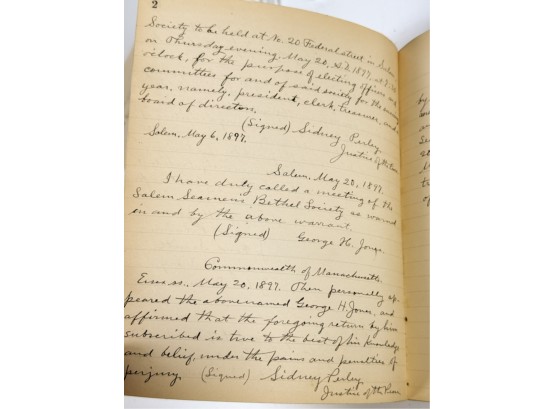 2
Society to be held at No. 20 Federal street in Salem
on Thursday evening, May 20, A.D. 1897, at 7:30
o'clock, for the purpose of electing officers and
committees for and of said society for the ensuing
year, namely, president, clerk, treasurer, and
board of directors.
(Signed) Sidney Perley,
Justice of the Peace
Salem, May 6, 1897.
Salem, May 20, 1897.
I have duly called a meeting of the
Salem Seamen's Bethel Society as warned
in and by the above warrant.
(Signed) George H. Jones.
Commonwealth of Massachusetts.
Essex ss. May 20, 1897. Then personally ap-
peared the above named George H. Jones, and
affirmed that the foregoing return by him
subscribed is true to the best of his knowledge
and belief, under the pains and penalties of
perjury. (Signed) Sidney Perley,
Justice of the Peace
by